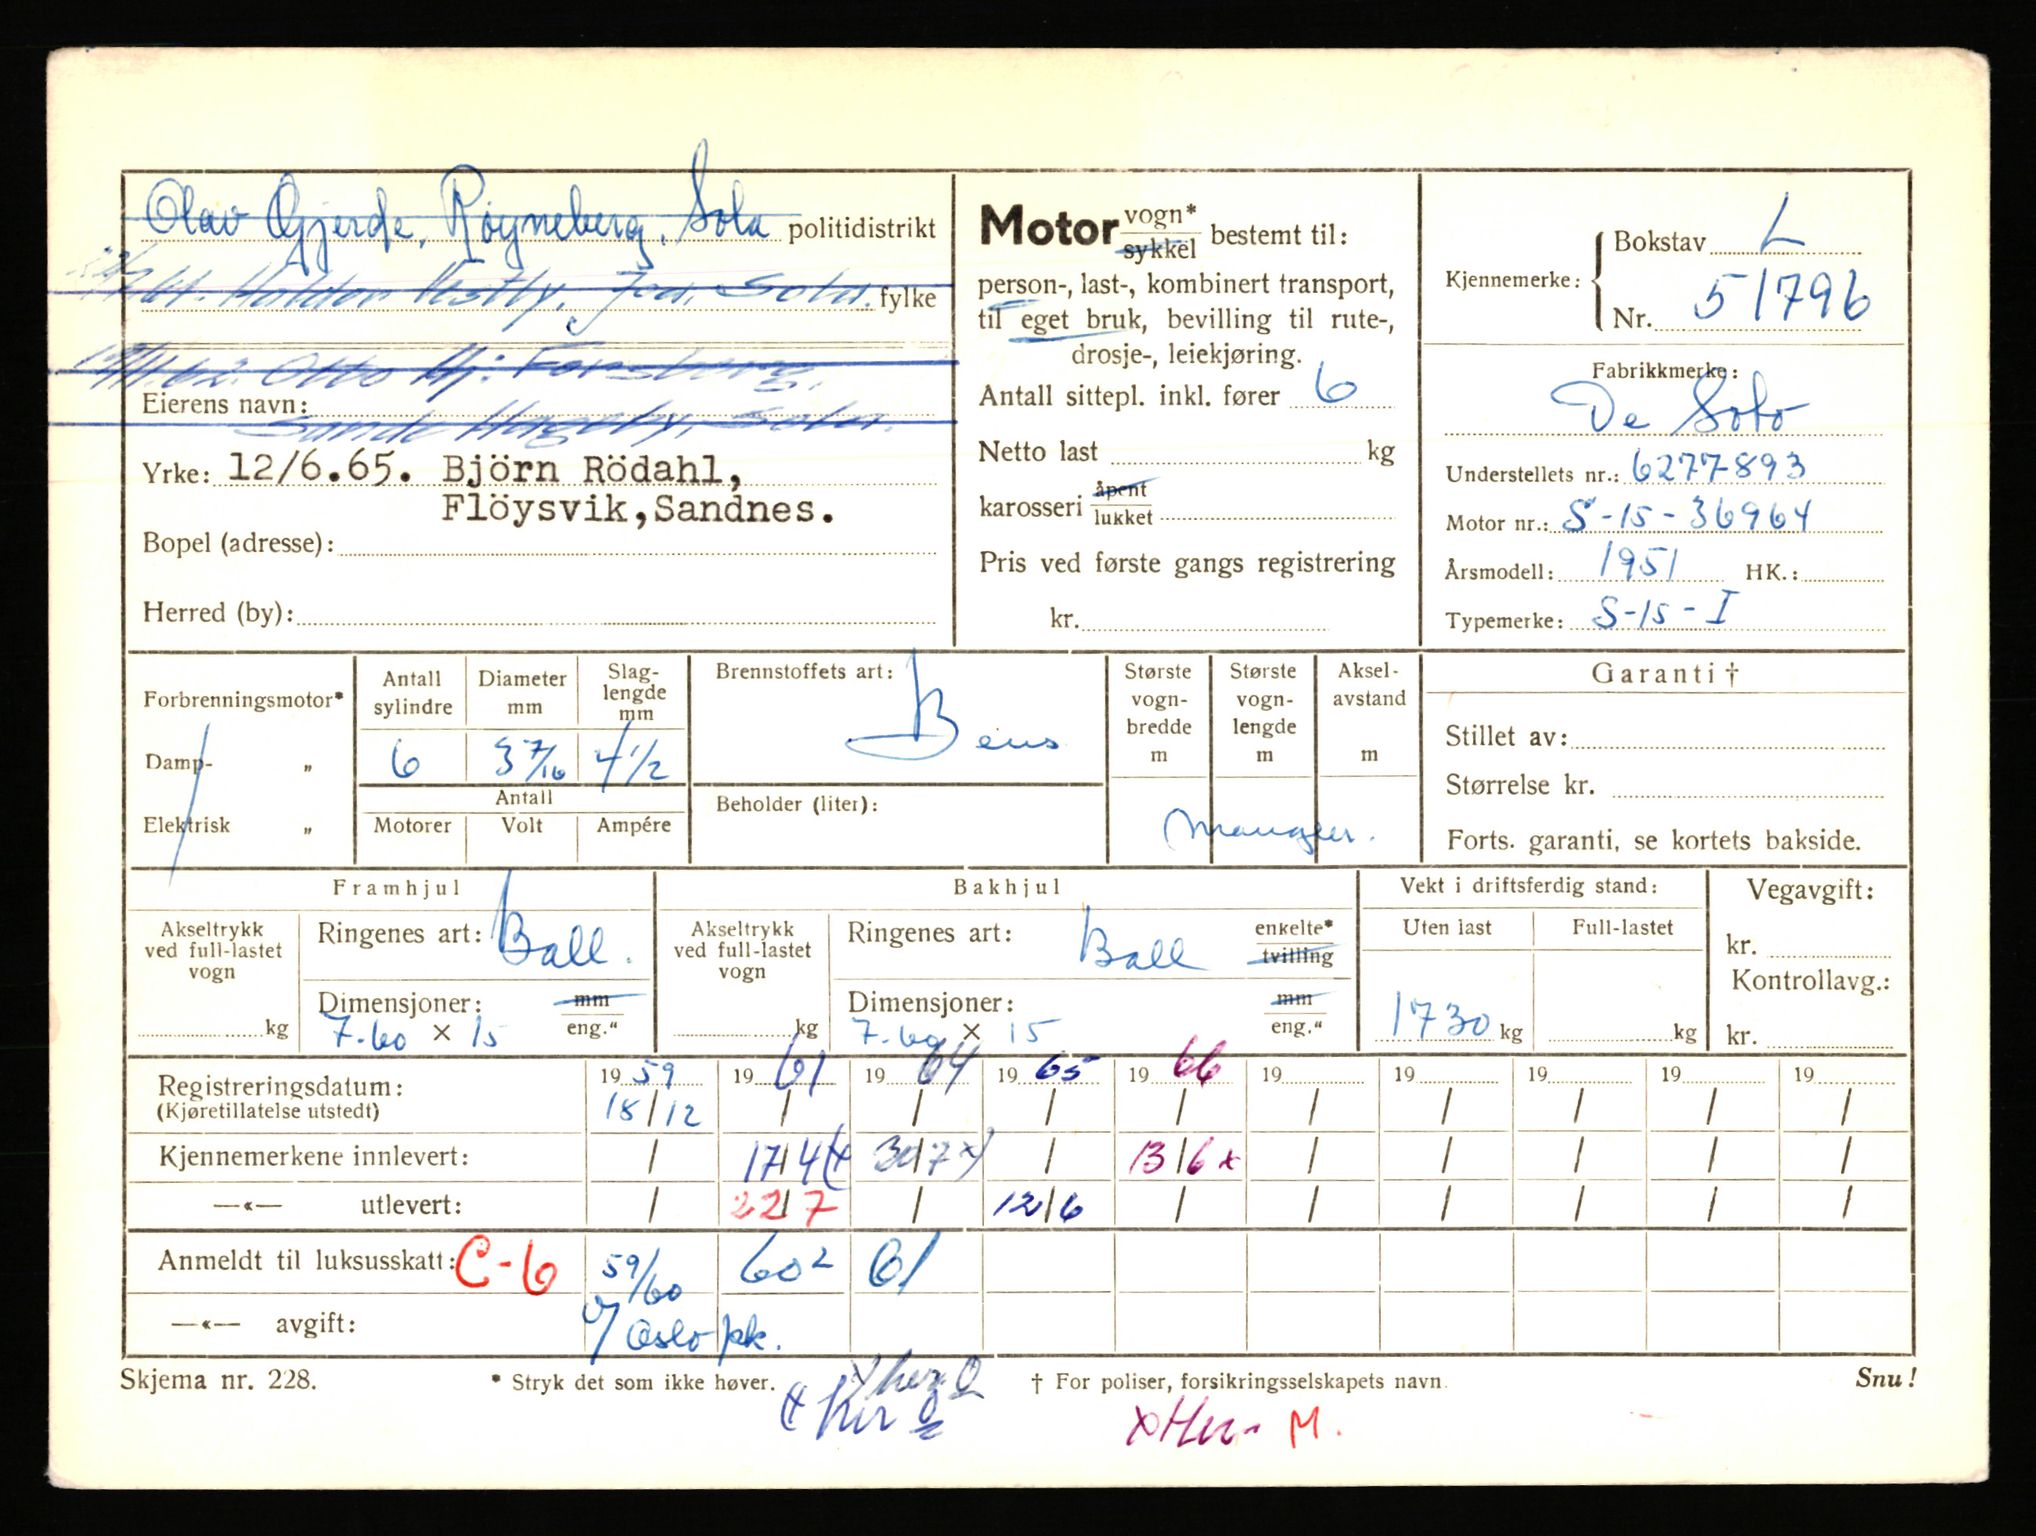 Olav Gjerde, Røyneberg, Sola politidistrikt
Haldor Vestly, Joa, Sola. fylke
Otto Hj. Forsberg,
Eierens navn:
Sande Hageby, Sola.
Yrke: 12/6.65. Björn Rödahl,
Flöysvik,Sandnes.
Bopel (adresse):
Herred (by):
Motor vogn* sykkel bestemt til:
person-, last-, kombinert transport,
til eget bruk, bevilling til rute-,
drosje-, leiekjøring.
Antall sittepl. inkl. fører 6
Netto last kg
karosseri åpent lukket
Pris ved første gangs registrering
kr.
Kjennemerke: Bokstav L
Nr. 51796
Fabrikkmerke:
De Soto
Understellets nr.: 6277893
Motor nr.: S-15-36964
Årsmodell: 1951 HK.:
Typemerke: S-15-I
Forbrenningsmotor*
Damp- „
Elektrisk „
Antall sylindre
6
Diameter mm
3 7/16
Slag-
lengde
mm
4 1/2
Antall
Motorer Volt Ampére
Brennstoffets art:
Bens
Beholder (liter):
Største
vogn-
bredde
m
Største
vogn-
lengde
m
Aksel-
avstand
m
Mangler.
Garanti †
Stillet av:
Størrelse kr.
Forts. garanti, se kortets bakside.
Framhjul
Akseltrykk
ved full-lastet
vogn
kg
Ringenes art: Ball.
Dimensjoner: mm
7.60 × 15 eng."
Bakhjul
Akseltrykk
ved full-lastet
vogn
kg
Ringenes art: Ball enkelte* tvilling
Dimensjoner: mm
7.60 × 15 eng."
Vekt i driftsferdig stand:
Uten last Full-lastet
1730 kg kg
Vegavgift:
kr.
Kontrollavg.:
kr.
Registreringsdatum: 1959 1961 1964 1965 1966 19 19 19 19 19
(Kjøretillatelse utstedt) 18/12 / / / / / / / / /
Kjennemerkene innlevert: / 17/4 (x 30/7 x) / 13/6 x / / / / /
—«— utlevert: / 22/7 / 12/6 / / / / / /
Anmeldt til luksusskatt: C-6 59/60 60² 61
—«— avgift: Oslo pk.
Skjema nr. 228. * Stryk det som ikke høver. † For poliser, forsikringsselskapets navn. Snu!
M.